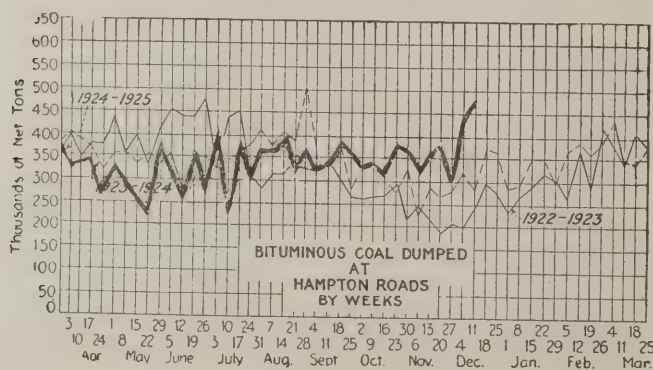 550
600
550
500
450
400
350
300
250
200
150
100
50
0
Thousands of Net Tons
1924-1925
1923-1924
1922-1923
BITUMINOUS COAL DUMPED
AT
HAMPTON ROADS
BY WEEKS
3 17 1 15 29 12 26 10 24 7 21 4 18 2 16 30 13 27 11 24 8 22 5 19 4 18
10 24 8 22 5 19 3 17 31 14 28 11 25 9 23 6 20 4 18 1 15 29 12 26 11 25
Apr May June July Aug. Sept Oct. Nov. Dec. Jan. Feb. Mar.